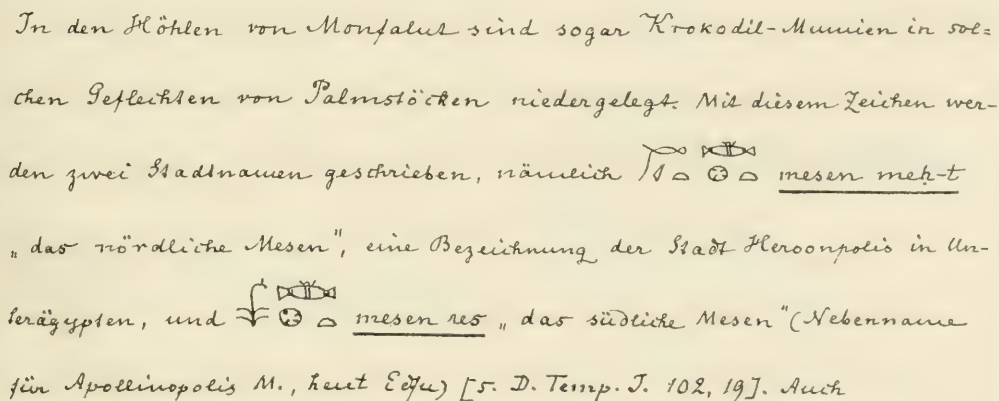 In den Höhlen von Monfalut sind sogar Krokodil-Mumien in sol=
chen Geflechten von Palmstöcken niedergelegt. Mit diesem Zeichen wer-
den zwei Stadtnamen geschrieben, nämlich mesen meḥ-t
„das nördliche Mesen", eine Bezeichnung der Stadt Heroonpolis in Un-
terägypten, und mesen res „das südliche Mesen" (Nebenname
für Apollinopolis M., heut Edfu) [s. D. Temp. I. 102, 19]. Auch